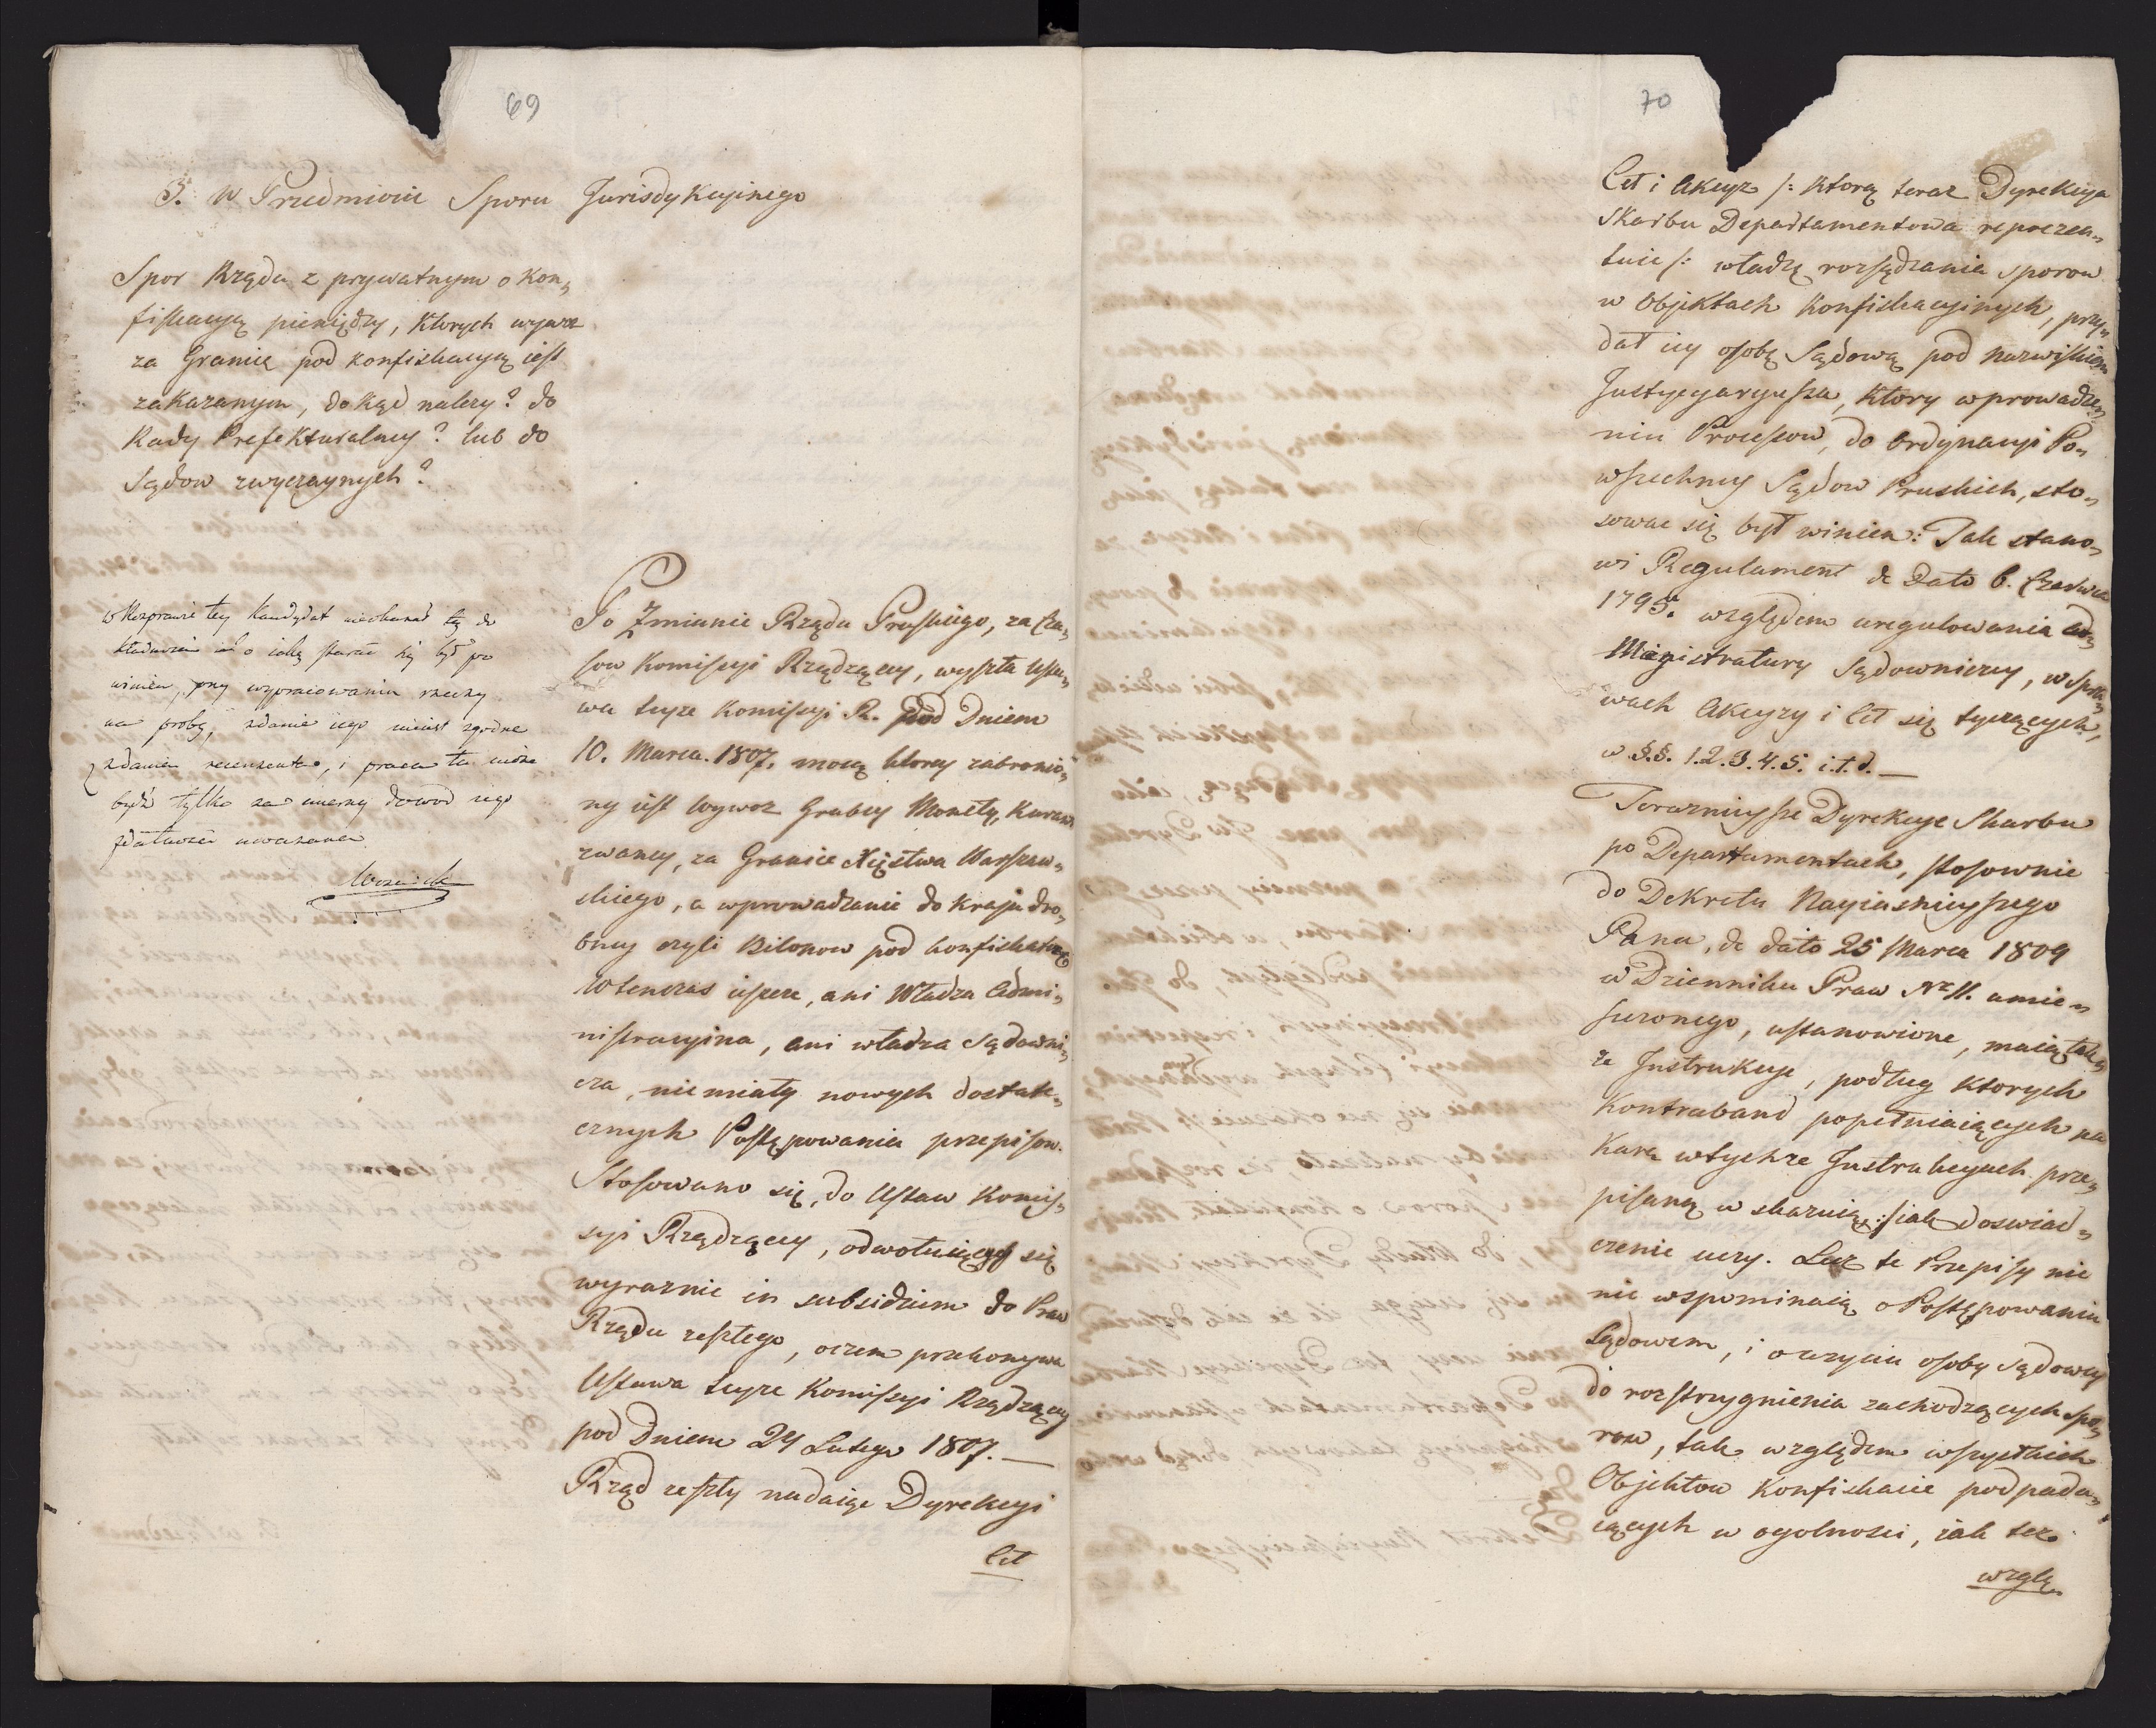 69
3. W Przedmiocie Sporu Jurisdykcyinego
Spor Rządu z prywatnym o kon„
fiskacyą pieniędzy, ktorych wywoz
za Granicę pod konfiskacyą iest
zakazanym, dokąd należy? do
Rady Prefekturalney? lub do
Sądow zwyczaynych?
w Rozprawie tey Kandydat niechował tey do
kładności o iaką starać się był po
winien, przy wypracowaniu rzeczy
na probę, zdanie iego nieiest zgodne
z zdaniem recenzenta, i praca ta może
bydź tylko za mierny dowod iego
zdatności uważana.
Woznicki
Po Zmianie Rządu Pruskiego, za Cza„
sow Komissyi Rządzącey, wyszła Usta„
wa teyże Komissyi R. pod Dniem
10. Marca. 1807. mocą ktorey zabronio„
ny iest Wywoz Grubey Monety, Kurant
zwaney, za Granice Xięstwa Warszaw„
skiego, a wprowadzanie do kraju dro„
bney czyli Bilonow pod konfiskatą
Wtenczas ieszcze, ani Władza Admi„
nistracyina, ani władza Sądowni„
cza, niemiały nowych dostate„
cznych Postępowania przepisow.
Stosowano się, do Ustaw Komis„
syi Rządzącey, odwołuiących się
wyraznie in subsidium do Praw
Rządu zeszłego, oczem przekonywa
Ustawa teyże Komissyi Rządzącey
pod Dniem 24 Lutego 1807. —
Rząd zeszły nadaiąc Dyrekcyi
Ceł
70
Ceł i Akcyz /: ktorą teraz Dyrekcya
Skarbu Departamentowa reprezen„
tuie /: władzę rozsądzania sporow
w Objektach Konfiskacyinych, przy„
dał iey osobę Sądową pod nazwiskiem
Justycyaryusza, ktory wprowadze„
niu Processow, do Ordynacyi Po„
wszechney Sądow Pruskich, sto„
sować się był winien: Tak stano„
wi Regulament de Dato 6. Czerwca
1795. względem uregulowania
Magistratury Sądowniczey, w Spra„
wach Akcyzy i Ceł się tyczących,
w §.§. 1.2.3.4.5. i.t.d. —
Terazniysze Dyrekcye Skarbu
po Departamentach, stosownie
do Dekretu Nayiasnieyszego
Pana, de dato 25 Marca 1809
w Dzienniku Praw Nr 11. umie„
szczonego, ustanowione, maią tak„
że Instrukcye, podług ktorych
Kontraband popełniaiących na
Karę wtychże Instrukcyach prze„
pisaną w skazuią :/ iak doswiad„
czenie uczy. Lecz te Przepisy nic
nie wspominaią o Postępowaniu
Sądowem, i o użyciu osoby Sądowey
do rozstrzygnienia zachodzących spo„
row, tak względem wszystkich
Objektow Konfiskacie podpada„
iących w ogolnosci, iak też
wzglę„